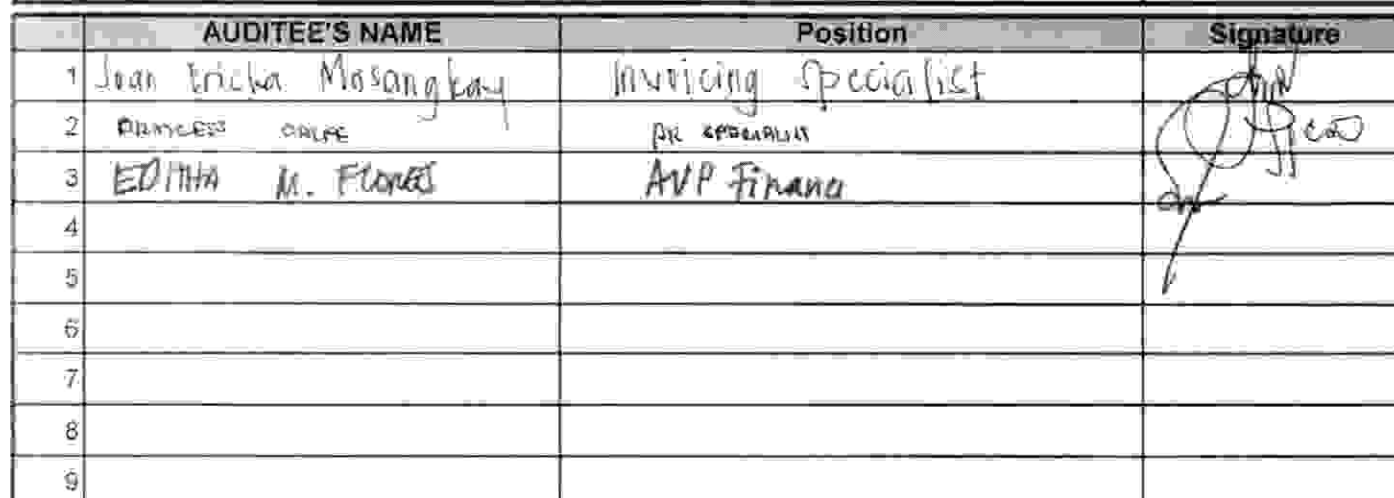 AUDITEE'S NAME Position Signature
1 Joan Ericka Masangkay Invoicing Specialist
2 PRINCESS AR SPECIALIST
3 EDITHA M. FLORES AVP Finance
4
5
6
7
8
9